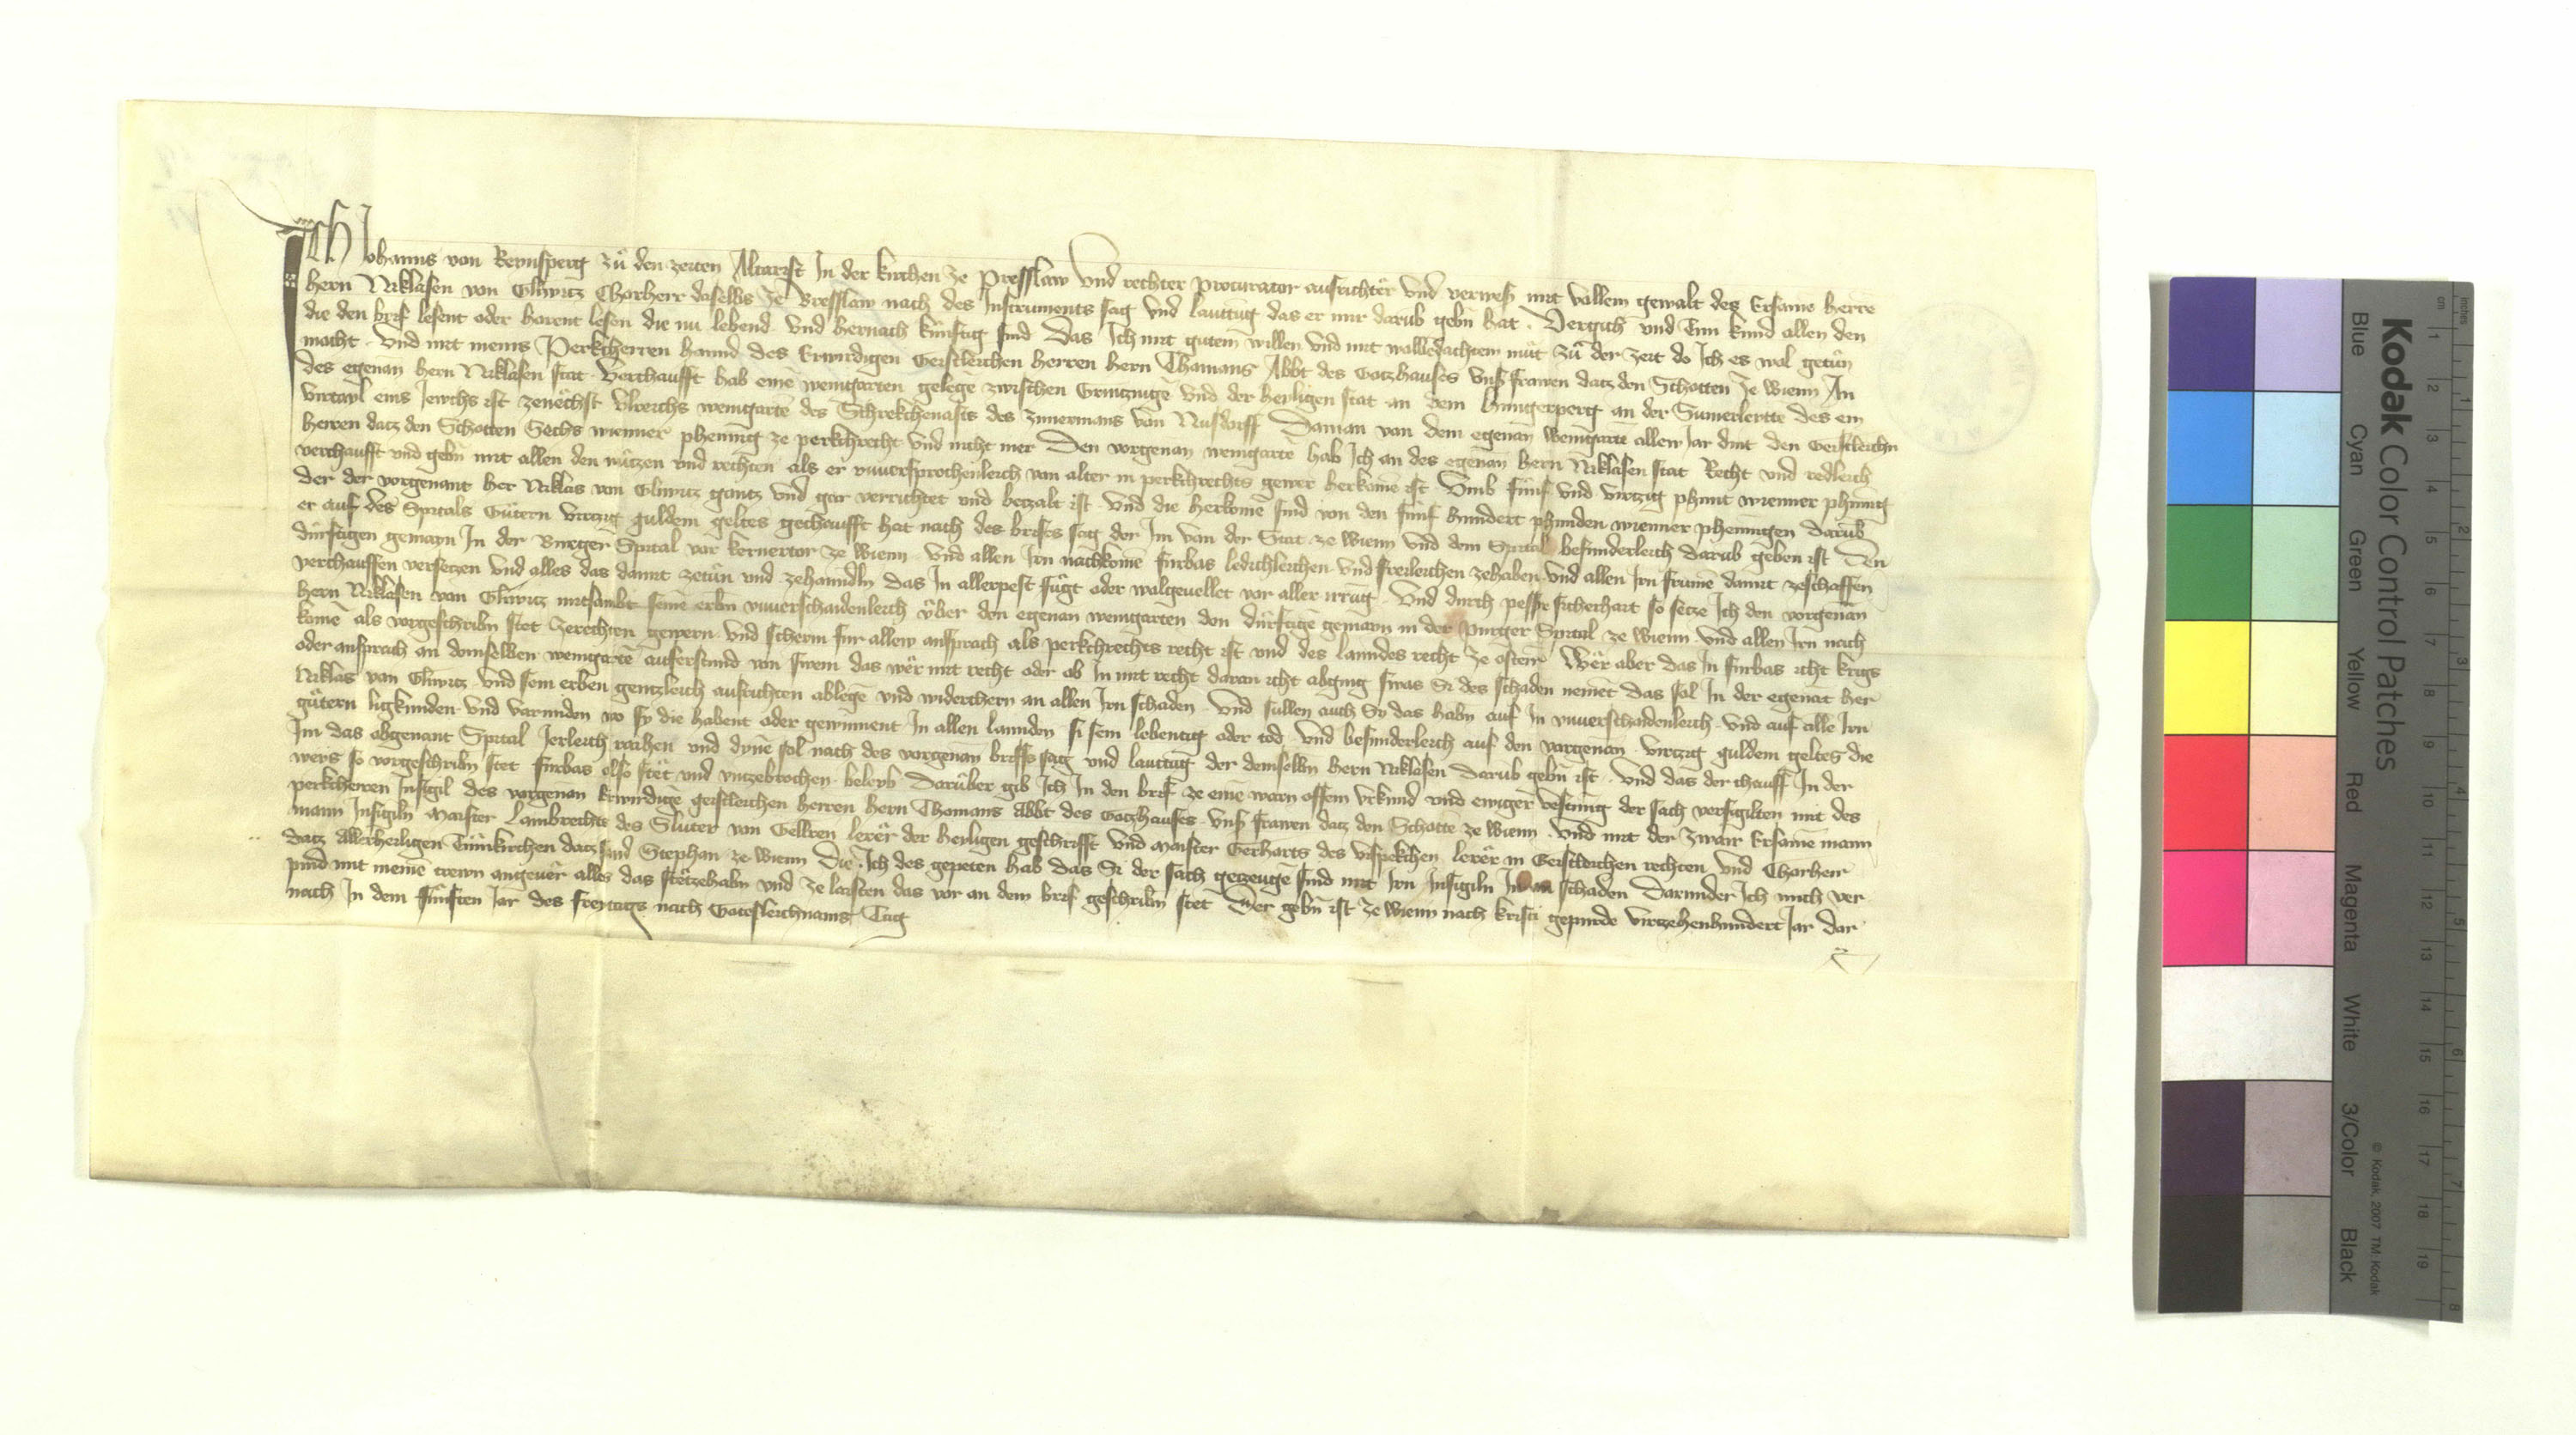 Ich Johanns von Rennsperg zů den zeiten Altarist In der kirchen ze Presslaw Vnd rechter procurator ausrichter vnd verweser mit vollem gewalt des Ersame herre
hern Niklasen von Gliwitz Chorherr daselbs ze Bresslaw nach des Instruments sag vnd lauttug das er mir darub gebn hat. Vergich vnd Tun kund allen den
die den brif lesent oder horent lesen die nu lebend vnd hernach künftig sind Das Ich mit gutem willen vnd mit wolbedachtem můt zů der zeit do Ich es wol getůn
mocht. Vnd mit meins Perkherren hannd des Erwirdigen Geistleichen herren hern Thomans Abbt des Gotzhauses Vnsr frawen datz den Schotten ze wienn An
des egenan hern Niklasen stat. Verchaufft hab eine weingarten gelege zwischen Grintzinge vnd der heyligen stat an dem hungerperg an der Sumerleytte des ein
virtayl eins Jewchs ist zenechst Vlreichs weingarte des Schrekchenasts des zimermans von Nusdorff Daman von dem egenan weingarte allew Jar dint den Geistleichn
herren datz den Schotten Sechs wienner phening ze perkchrecht vnd nicht mer Den vorgenan weingarte hab Ich an des egenan hern Niklasen stat Recht vnd redleich
verchaufft vnd gebn mit allen den nützen vnd rechten als er vnuersprochenleich von alter in perkchrechts gewer herkome ist. Vmb fünf vnd virtzig phunt wienner phning
der der vorgenant her Niklas von Gliwitz gantz vnd gar verrichtet vnd betzalt ist. Vnd die herkome sind von den fünf hundert phunden wienner phenigen darub
er auf des Spitals Gütern virtzig guldein geltes gechaufft hat nach des brifes sag der Im von der Stat ze wienn vnd dem Spital besunderleich darub geben ist Den
dürftigen gemayn In der Burger Spital vor kernertor ze wienn. Vnd allen Irn nachkome furbas ledichleichen vnd freileichen zehaben. Vnd allen Irn frume damit zeschaffen
verchauffen versetzen vnd alles das damit zetůn vnd zehanndln das In allerpest fügt oder wolgeuellet vor aller irrug. Vnd durch pessr sicherhait so setze Ich den vorgenan
hern Niklasen von Gliwitz mitsambt seine erbn vnuerschaidenleich vber den egenan weingarten den dürftige gemain in der Purger Spital ze wienn. Vnd allen Irn nach
kome als vorgeschribn stet zerechten gewern. Vnd scherm fur allew ansprach als perkchrechts recht ist vnd des lanndes recht ze osterr Wer aber das In furbas icht krigs
oder ansprach an demselben weingarte auferstund von swem das wer mit recht oder ob In mit recht daran icht abging swas Si des schaden nement das sol In der egenat her
Niklas von Gliwitz. Vnd sein erben gentzleich ausrichten ablege vnd widerchern an allen Irn schaden. Vnd sullen auch Sy das habn auf In vnuerschaidenleich. Vnd auf alle Irn
gütern ligkunden vnd varunden wo sy die habent oder gewinnent In allen lannden si sein lebentig oder tod. Vnd besunderleich auf den vorgenan virtzig guldein geltes die
Im das obgenant Spital Jerleich raihen vnd dyne sol nach des vorgenan briffs sag vnd lauttug der demselbn hern Niklasen darub gebn ist. Vnd das der chauff In der
weis so vorgeschribn stet furbas also stet vnd vntzebrochen. beleyb Darüber gib Ich In den brif ze eine warn offem Vrkund vnd ewiger vestung der sach versigilten mit des
perkcherren Insigil des vorgenan Erwirdige geistleichen herren hern Thomans Abbt des Gotzhauses Vnsr frawen datz den Schotte ze wienn. Vnd mit der zwair Ersame mann
mann Insigiln Maister Lambrechts des Sluter von Gellren lerer der heyligen geschrifft Vnd Maister Gerharts des vispekchen lerer in Geistleichen rechten vnd Chorherr
datz Allerheiligen Tumkirchen datz sand Stephan ze wienn Die Ich des gepeten hab das Si der sach getzeuge sind mit Irn Insigiln In an schaden Darunder Ich mich ver
pind mit meine trewn angeuer alles das stetzehabn vnd ze laisten das vor an dem brif geschribn stet Der gebn ist ze wienn nach kristi gepurde virtzehenhundert Jar dar
nach In dem fünften Jar des freytags nach Gotsleichnams Tag
Kodak Color Control Patches
Blue Cyan Green Yellow Red Magenta White 3/Color Black
© Kodak, 2007 TM: Kodak